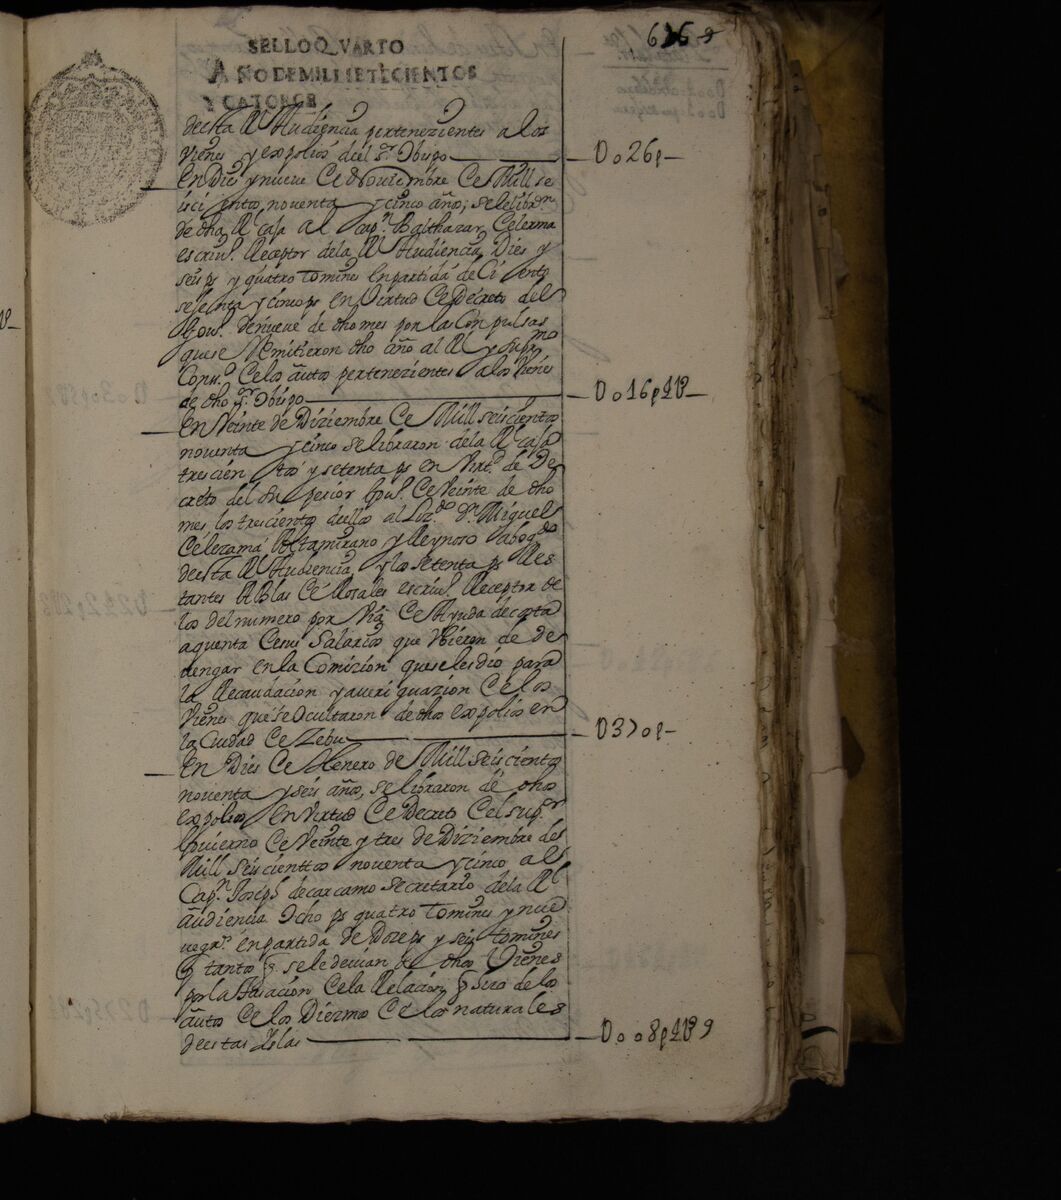 SELLO QVARTO
AÑO DE MIL SETECIENTOS
Y CATORCE
desta Rl Audiencia pertenezientes a los
vienes y expolios del Sr Obispo — U o 26 p —
En Dies y nueve de Noviembre de Mill se
isci entos, noventa y cinco años, se le libron
de dha Rl Caja al Capn Balthazar de Lerma
escrivo Receptor de la Rl Audiencia, Dies y
seis ps y quatro tomines en partida de Ci ento
sesenta y cinco ps en Virtud de Decreto del
Govo de nueve de dho mes por las Conpulsas
que se Remitieron dho año al Rl y Supmo
Consejo de los autos pertenezientes a los Vienes
de dho Sr Obispo — U o 16 p 4 —
En Veinte de Diziembre de Mill seiscientos
noventa y cinco se libraron de la Rl Caja
trescien tos y setenta ps en Virtd de De
creto del Su perior Govo de Veinte de dho
mes los trescientos dellos al Lizdo Dn Miguel
de Lezama Altamirano y Reynoso Abogdo
desta Rl Audiencia, y los setenta ps Res
tantes a Blas de Rosales escrivo Receptor de
los del numero por Via de Ayuda de costa
a quenta de sus Salarios que Vbieron de de
vengar en la Comizion que se les dio para
la Recaudacion y averi guazion de los
vienes que se ocultaron de dhos expolios en
la Ciudad de Zebu — U 370 p —
En Dies de Henero de Mill seiscientos
noventa y seis años, se libraron de dhos
expolios en Virtud de Decreto del supor
Govierno de Veinte y tres de Diziembre de
Mill seiscientos noventa y cinco al
Capn Joseph de carcamo Secretario de la Rl
audiencia Ocho ps quatro tomines y nue
ve grs en partida de Doze ps y seis tomines
q tantos se le devian de dhos Vienes
por la Tasacion de la Relacion q hizo de los
autos de los Diezmos de los naturales
destas Yslas — U o o 8 p 4 9